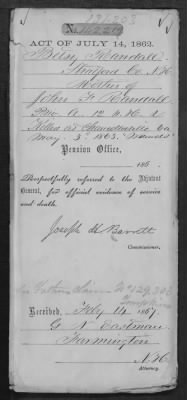 191.303
No.
ACT OF JULY 14, 1862.
Betsy Randall
Strafford Co N.H.
Mother of
John F Randall
Killed at Chancellorsville Va
May 3d 1863.
Pension Office,
186 .
Respectfully referred to the Adjutant
General, for official evidence of service
and death.
Joseph H Barrett
Commissioner.
Received, Feby 14 1867.
G N Eastman
Farmington
N.H.
Attorney.